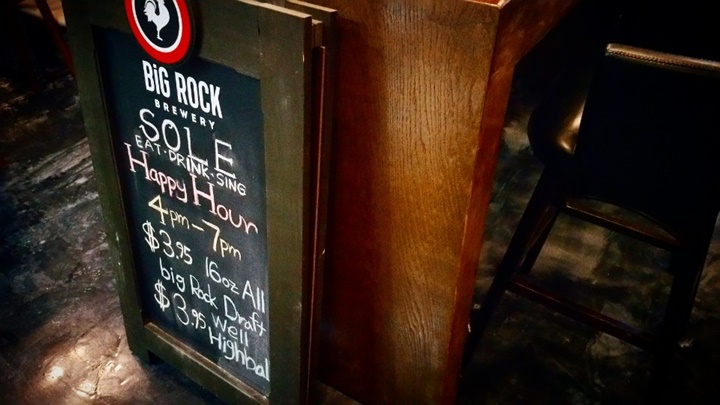 BiG ROCK
BREWERY
SOLE
EAT·DRINK·SING
Happy Hour
4pm-7pm
$3.95 16oz All
big Rock Draft
$3.95 Well
Highbal